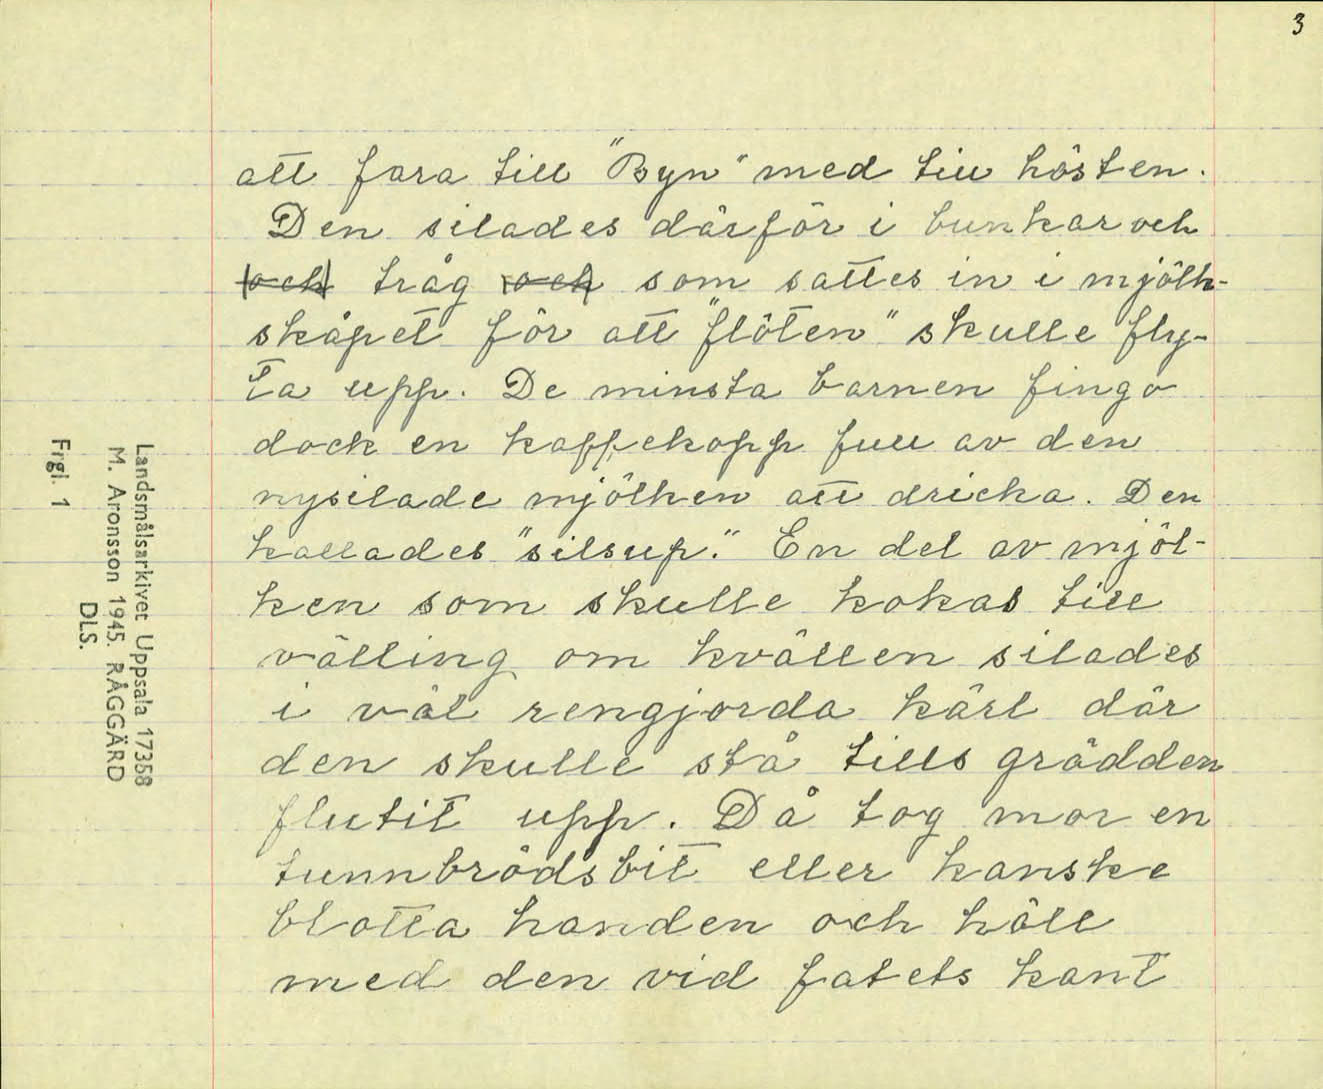 3
att fara till "Byn" med till hösten.
Den silades därför i bunkar och
och tråg och som sattes in i mjölk-
skåpet för att "flöten" skulle fly-
ta upp. De minsta barnen fingo
dock en kaffekopp full av den
nysilade mjölken att dricka. Den
kallades "silsup". En del av mjöl-
ken som skulle kokas till
välling om kvällen silades
i väl rengjorda kärl där
den skulle stå tills grädden
flutit upp. Då tog mor en
tunnbrödsbit eller kanske
blotta handen och höll
med den vid fatets kant
Landsmålsarkivet Uppsala 17358
M. Aronsson 1945. RÅGGÄRD
DLS.
Frgl. 1